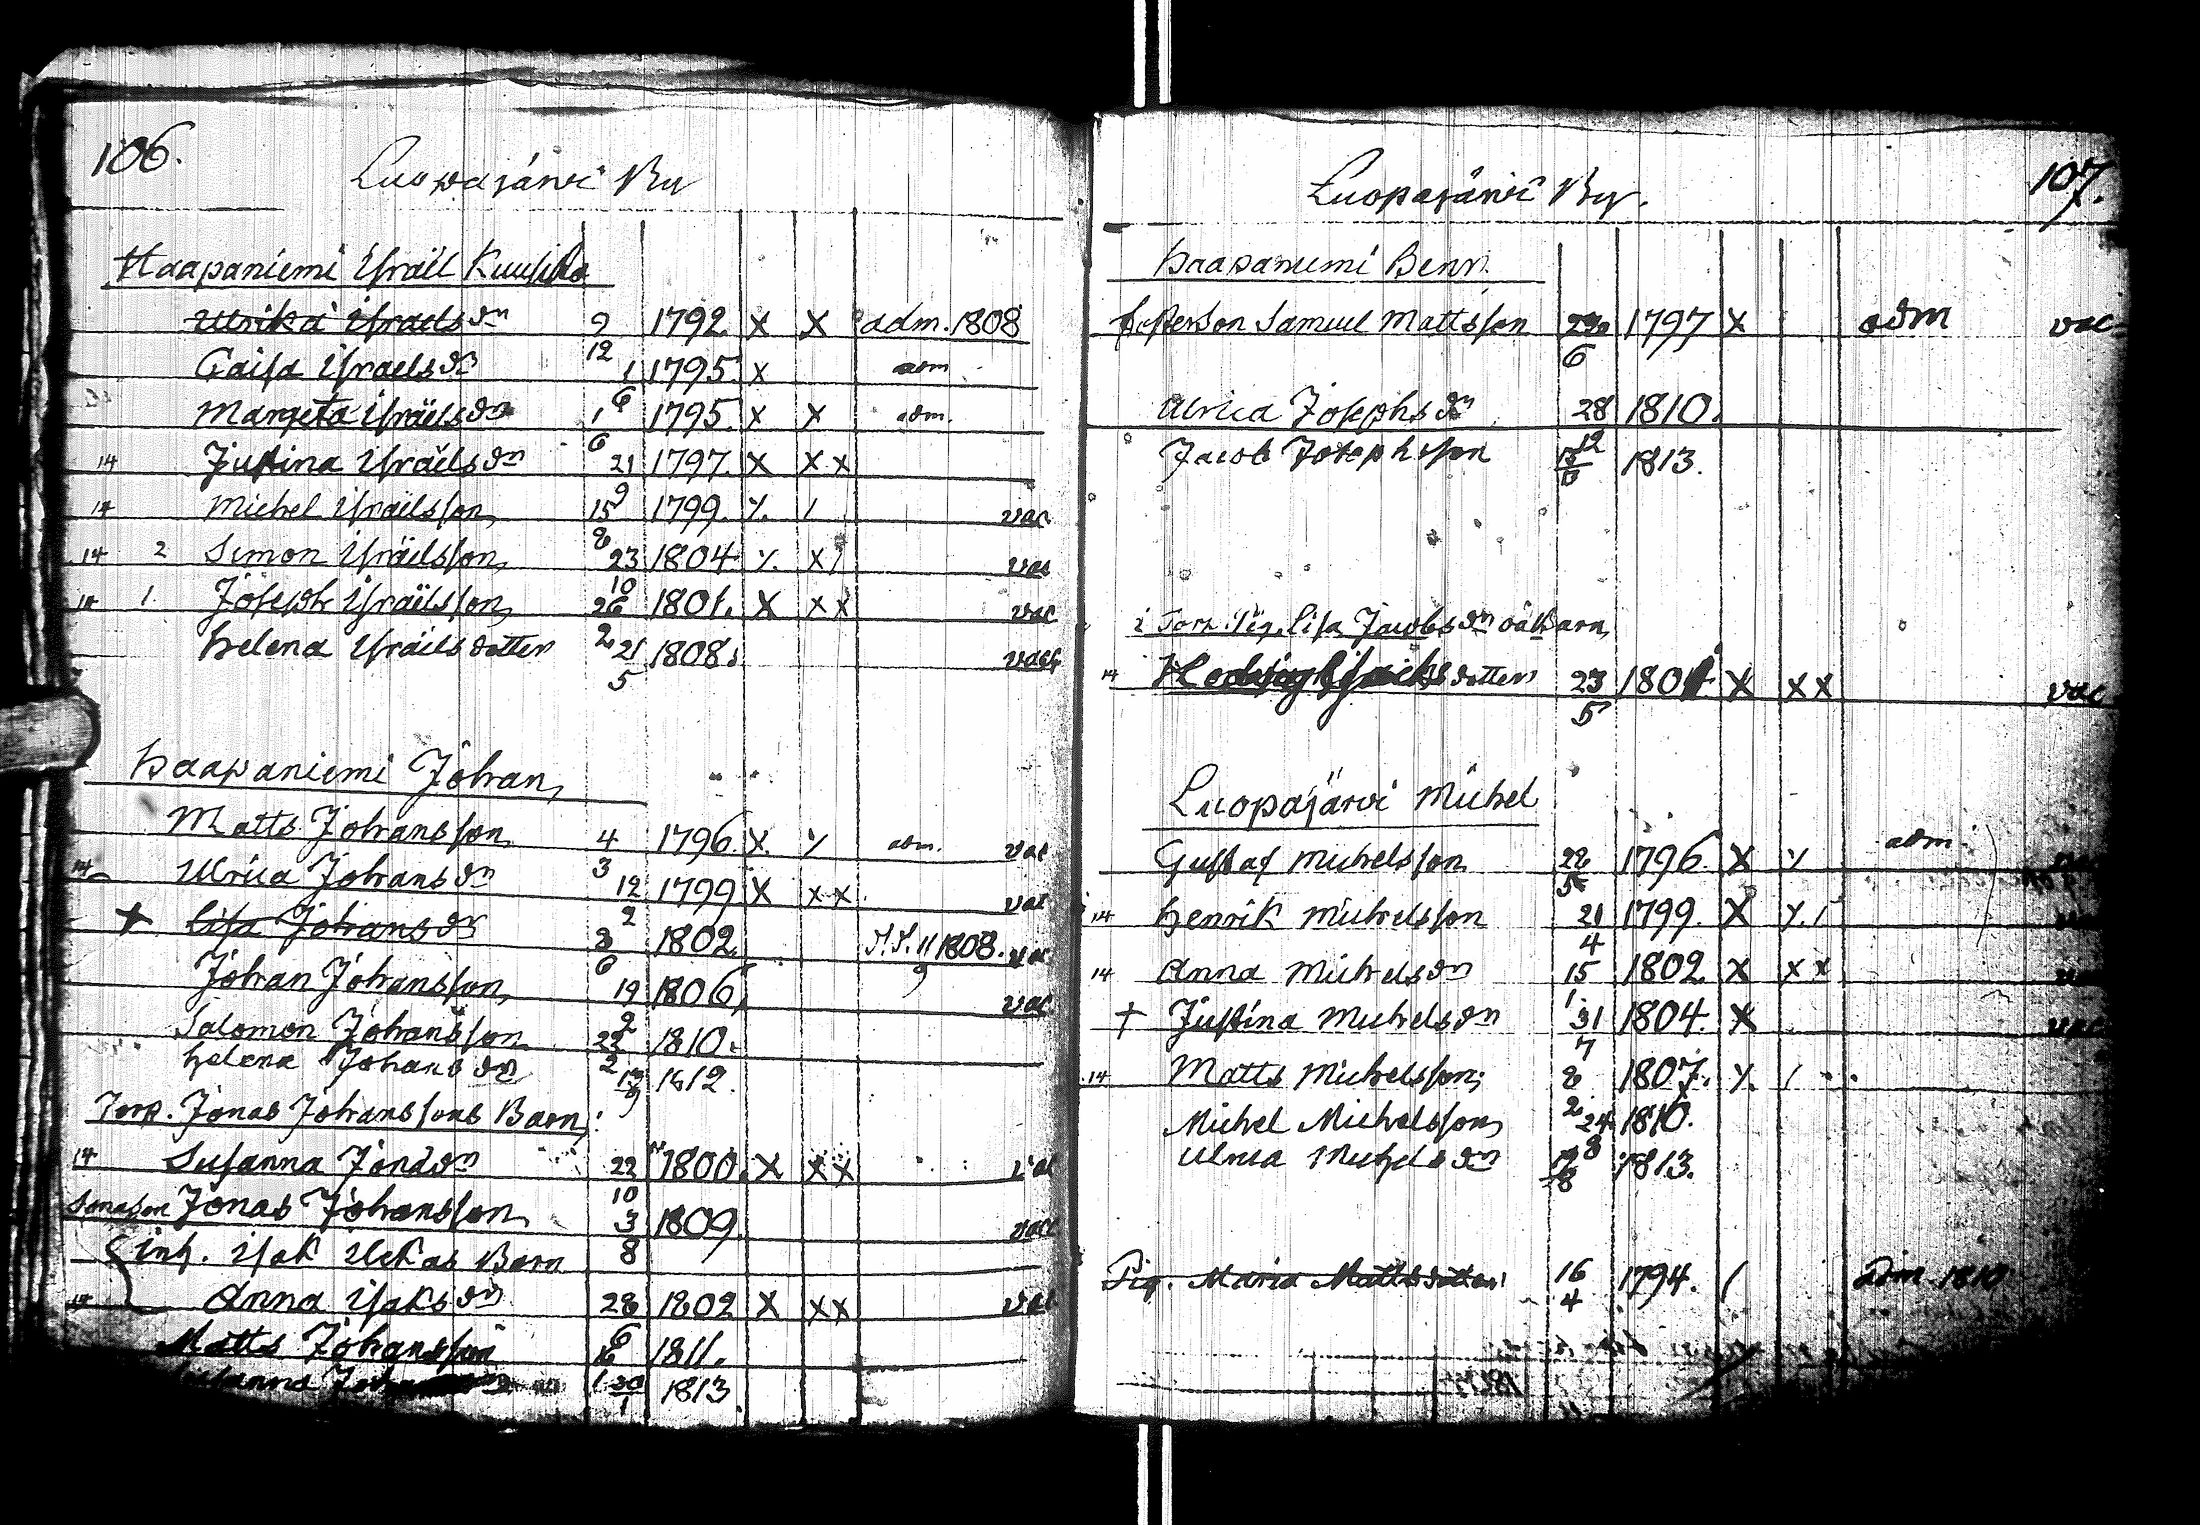 106.
Luopajärvi By
Haapaniemi Isräel Kuusisto
Ulrika Israelsdr 9/12 1792 X X adm. 1808
Caisa Israelsdr 1/6 1795. X adm
Margeta Isräelsdr 1/6 1795. X X adm.
14 Justina Isräelsdr 21/9 1797. X X X
14 Michel Isräelsson 15/8 1799. vac
14 2 Simon Isräelsson 23/10 1804. vac
14 1. Joseph Isräelsson 26/2 1801. X X X vac
Helena Isräelsdotter 21/5 1808. vacc
Haapaniemi Johan
Matts Johansson 4/3 1796. X adm. vac
14 Ulrica Johansdr 12/2 1799 X X X vac
† Lisa Johansdr 3/6 1802 11/9 1808. vac
Johan Johansson 19/2 1806, vac
Salomon Johansson 22/2 1810.
Helena Johansdr 13/9 1812.
Torp. Jonas Johanssons Barn:
14 Susanna Jonadr 22/10 1800. X X X vac
Sonason Jonas Johansson 3/8 1809. vac
inh. Isak Barn
14 Anna Isaksdr 28/6 1802 X X X vac
Matts Johansson 1811.
30/1 1813
107.
Luopajärvi By.
Haapaniemi Benr.
Samuel Mattsson 6 1797 X adm vac
Ulrica Josephsdr 28/12 1810.
Jacob Josephsson 1813.
i Torp. Pig. Lisa Jacobsdr oäk barn
14 dotter 23/5 1801 X X X vac
Luopajärvi Michel
Gustaf Michelsson 28/5 1796. X adm
14 Henrik Michelsson 21/4 1799. X
14 Anna Michelsdr 15/1 1802 X X X
† Justina Michelsdr 31/7 1804. X vac
14 Matts Michelsson 8/2 1807.
Michel Michelsson 24/8 1810.
Ulrica Michelsdr 1813.
Pig. Maria Mattsdotter 16/4 1794. adm 1810